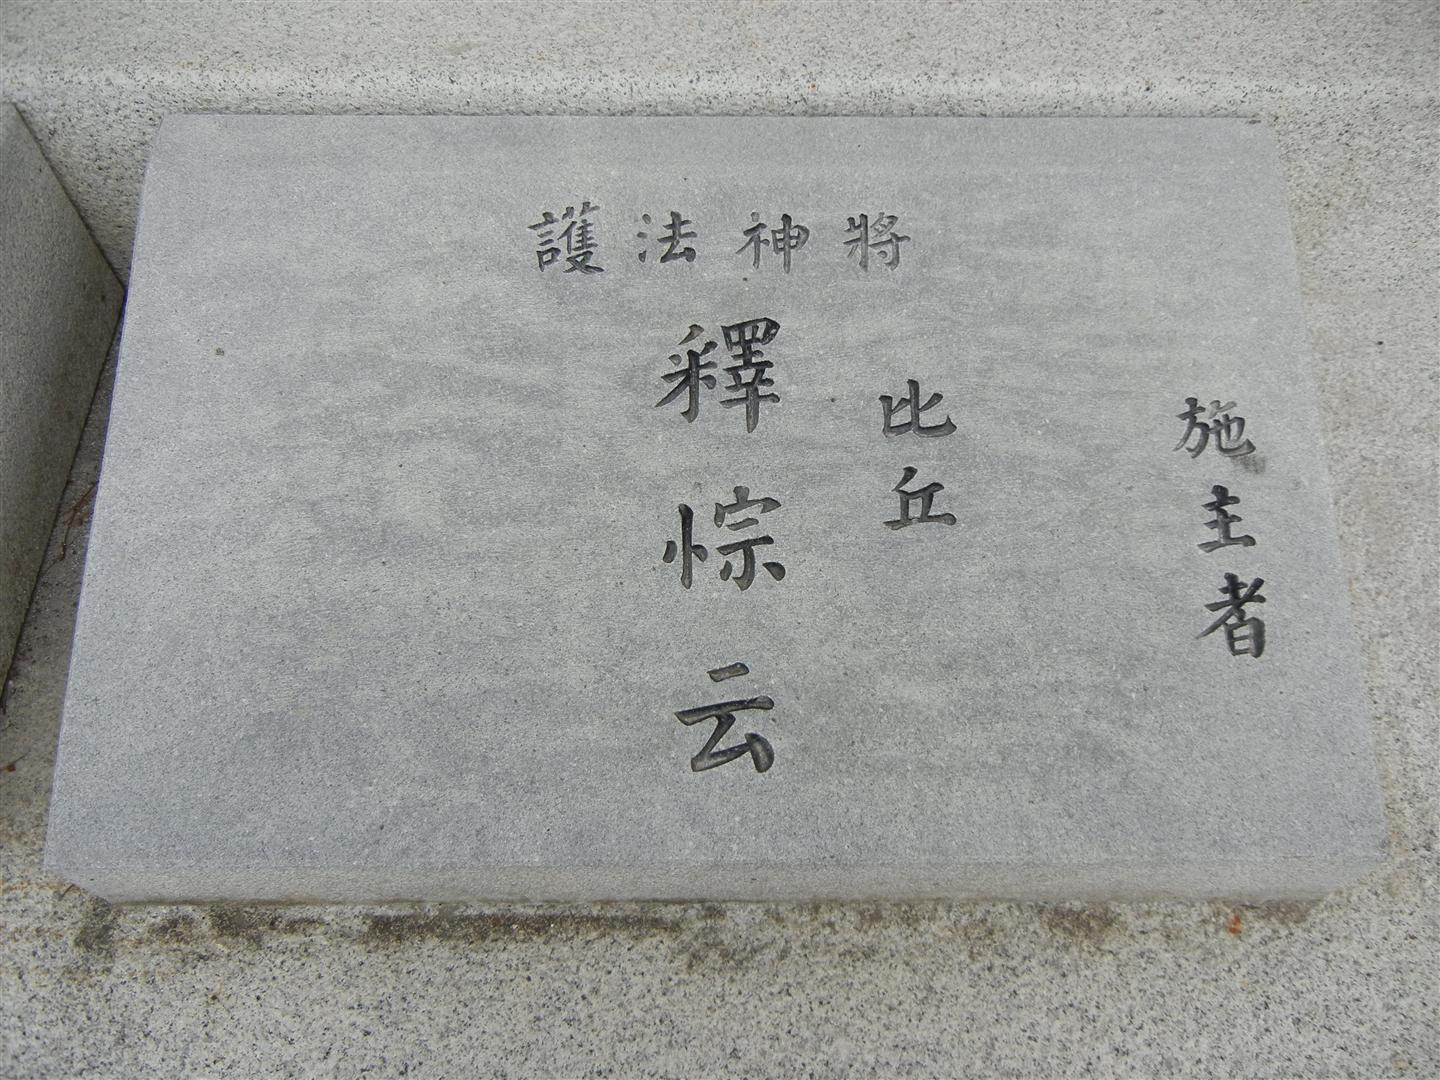 護法神將
施主者
比丘
釋悰云